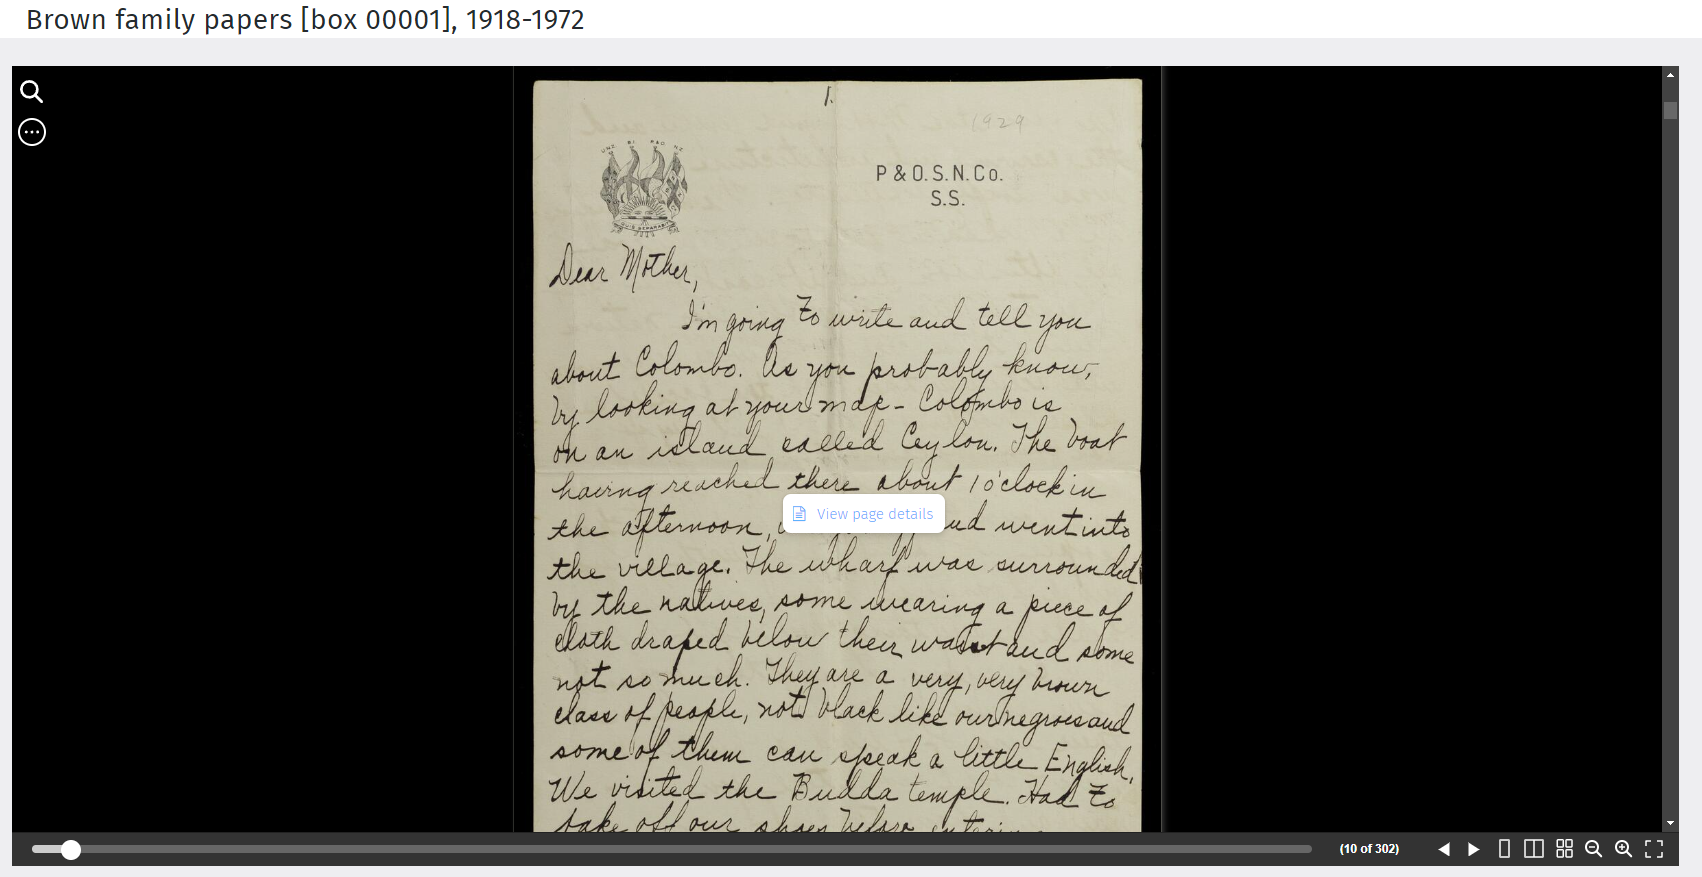 Brown family papers [box 00001], 1918-1972
1.
1929
UNZ BI P&O NZ
P & O. S. N. Co.
S.S.
Dear Mother,
I'm going to write and tell you
about Colombo. As you probably know,
by looking at your map - Colombo is
on an island called Ceylon. The boat
having reached there about 1 o'clock in
the afternoon, and went into
View page details
the village. The wharf was surrounded
by the natives, some wearing a piece of
cloth draped below their waist and some
not so much. They are a very, very brown
class of people, not black like our negroes and
some of them can speak a little English.
We visited the Budda temple. Had to
take off our shoes before entering
(10 of 302)